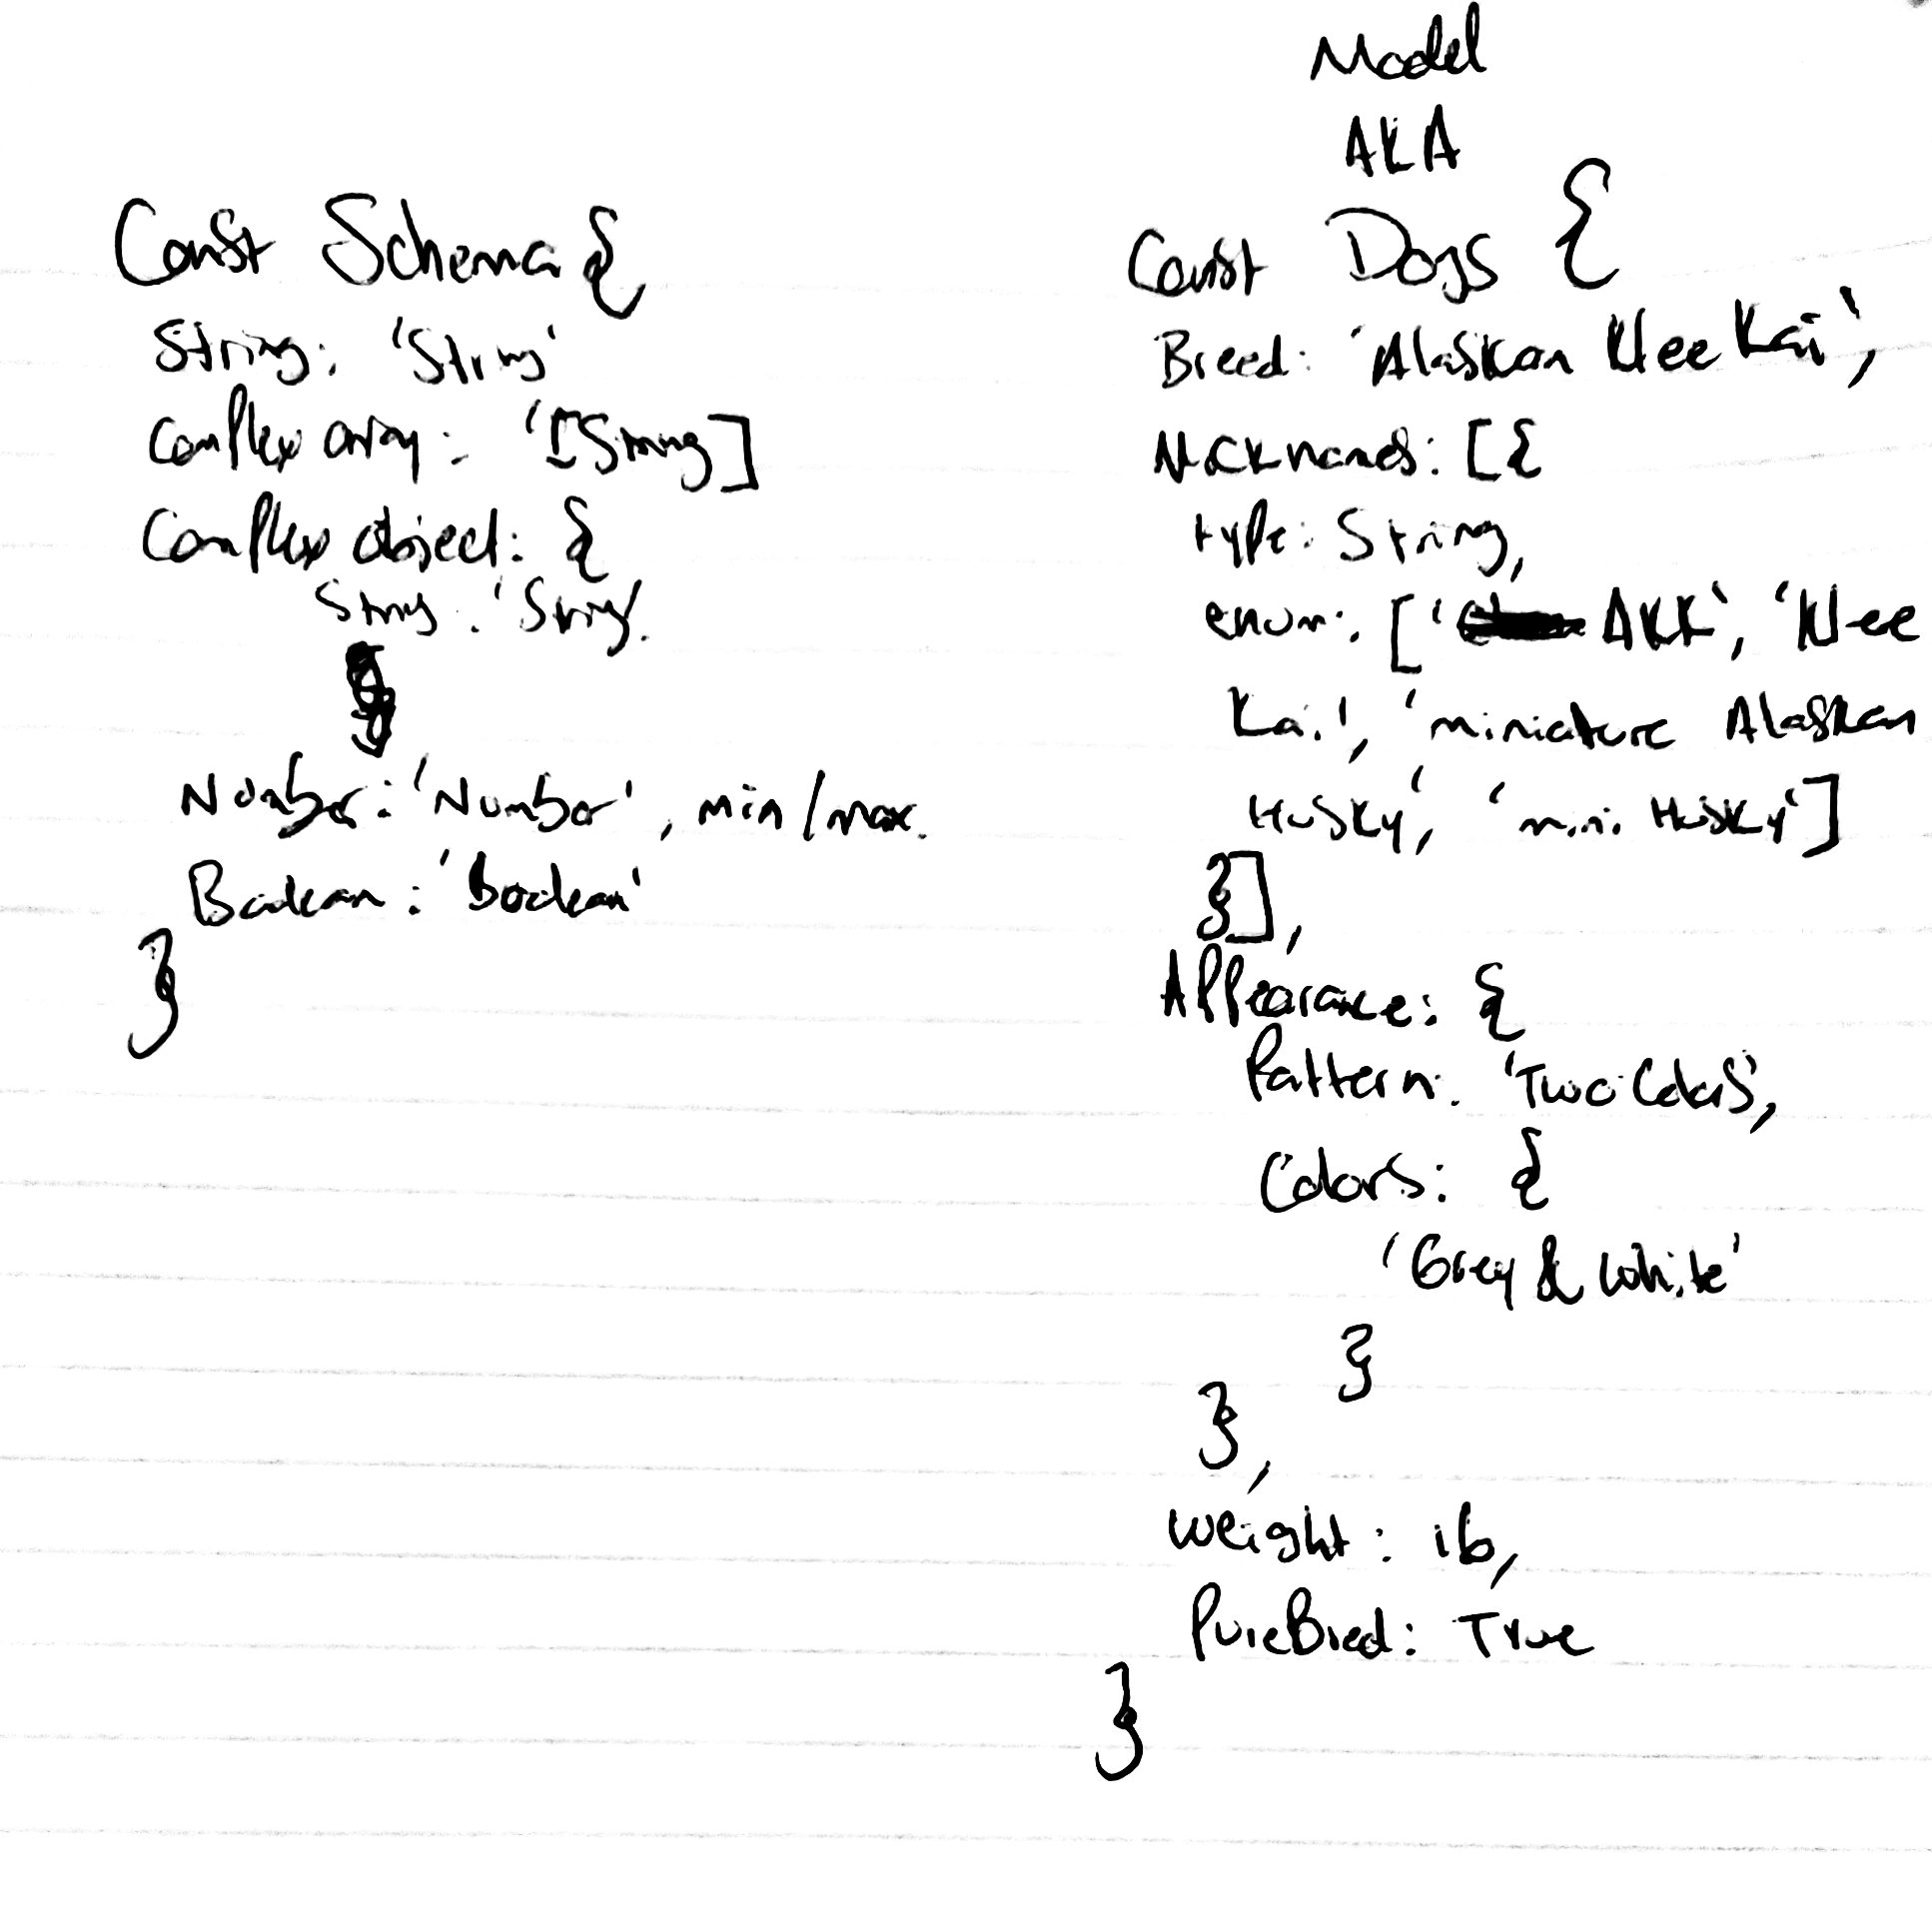 Const Schema {
String: 'String'
Complex array: '[String]
Complex object: {
String: 'String'.
Number: 'Number', min/max.
Boolean: 'Boolean'
}
Model
AKA
Const Dogs {
Breed: 'Alaskan Klee Kai',
Nicknames: [{
type: String,
enum: [' AKK', 'Klee
Kai', 'miniature Alaskan
Husky', 'mini Husky']
}],
Appearance: {
Pattern: 'Two Colors',
Colors: {
'Grey & White'
}
},
Weight: 16,
PureBred: True
}